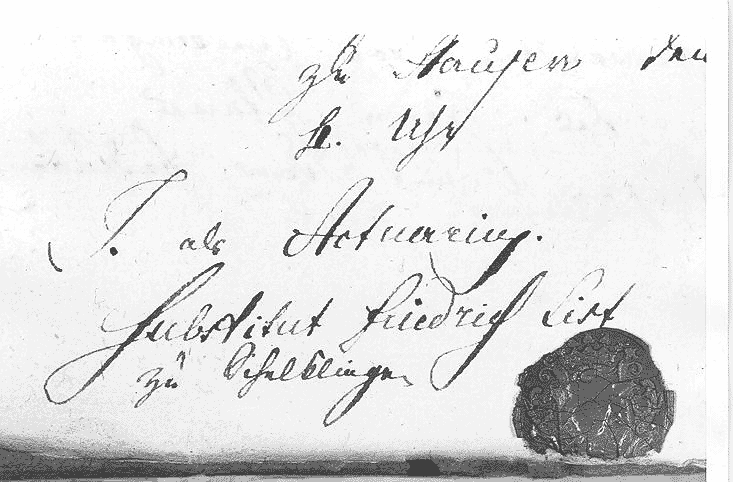 zu Hausen den
Uhr
T. als Actuarius.
Substitut Friedrich List
zu Schelklingen